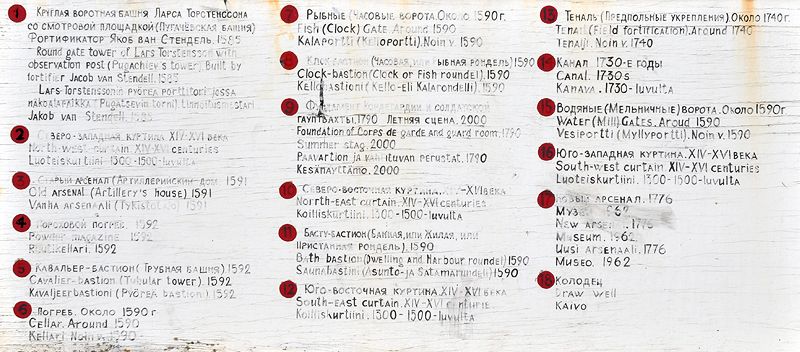 1 Круглая воротная башня Ларса Торстенссона
со смотровой площадкой (Пугачёвская башня)
Фортификатор Якоб ван Стендель. 1585
Round gate tower of Lars Torstensson with
observation post (Pugachiev's tower). Built by
fortifier Jacob van Stendell. 1585
Lars Torstenssonin pyöreä porttitori jossa
näköalapaikka (Pugatsevin torni). Linnoitusmestari
Jakob van Stendell. 1585
2 Северо-западная куртина XIV-XVI веков
North-west curtain XIV-XVI centuries
Luoteiskurtiini 1300-1500-luvulta
3 Старый арсенал (Артиллерийский дом) 1591
Old arsenal (Artillery's house) 1591
Vanha arsenaali (Tykistötalo) 1591
4 Пороховой погреб. 1592
Powder magazine 1592
Ruutikellari. 1592
5 Кавальер-бастион (Трубная башня) 1592
Cavalier-bastion (Tubular tower). 1592
Kavaljeerbastioni (Pyöreä bastioni). 1592
6 Погреб. Около 1590 г
Cellar. Around 1590
Kellari. Noin v. 1590
7 Рыбные (Часовые) ворота. Около 1590г.
Fish (Clock) Gate. Around 1590
Kalaportti (Kelloportti). Noin v. 1590
8 Клок-бастион (Часовая, или Рыбная рондель) 1590
Clock-bastion (Clock or Fish roundel). 1590
Kellobastioni (Kello-eli Kalarondelli). 1590
9 Фундамент кордегардии и солдатской
гауптвахты. 1790 Летняя сцена. 2000
Foundation of Corps de garde and guard room. 1790
Summer stag. 2000
Päävartion ja vahtituvan perustat. 1790
Kesänäyttämö. 2000
10 Северо-восточная куртина. XIV-XVI века
Norrth-east curtain. XIV-XVI centuries
Koilliskurtiini. 1300-1500-luvulta
11 Басту-бастион (Банная, или Жилая, или
Пристанная рондель). 1590
Bath bastion (Dwelling and Harbour roundel) 1590
Saunabastini (Asunto-ja Satamarundeli) 1590
12 Юго-восточная куртина. XIV-XVI века
South-east curtain. XIV-XVI centuries
Koilliskurtiini. 1300-1500-luvulta
13 Теналь (Предпольные укрепления). Около 1740г.
Tenail (Field fortification). Around 1740
Tenalji. Noin v. 1740
14 Канал 1730-е годы
Canal. 1730s
Kanava. 1730-luvulta
15 Водяные (Мельничные) ворота. Около 1590г
Water (Mill) Gates. Aroud 1590
Vesiportti (Myllyportti). Noin v. 1590
16 Юго-западная куртина. XIV-XVI века
South-west curtain XIV-XVI centuries
Luoteiskurtiini. 1300-1500-luvulta
17 Новый арсенал. 1776
Музей
New arsenal. 1776
Museum. 1962
Uusi arsenaali. 1776
Museo. 1962
18 Колодец
Draw well
Kaivo